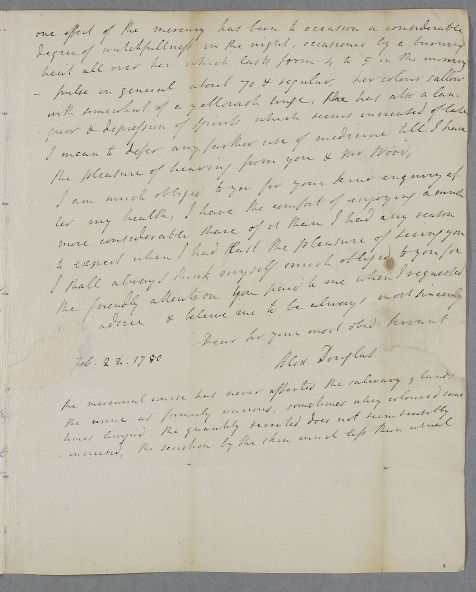 one effect of the mercury has been to occasion a considerable
degree of watchfullness in the night, occasioned by a burning
heat all over her which lasts from 4 to 5 in the morning
- pulse in general about 70 & regular, her colour sallow
with somewhat of a yellowish tinge, she has also a lan-
guor & depression of spirits which seems increased of late
I mean to defer any further use of medicine till I have
the pleasure of hearing from you & Mr Wood,
I am much obliged to you for your kind enquiry af
ter my health, I have the comfort of enjoying a much
more considerable share of it than I had any reason
to expect when I had last the pleasure of seeing you
I shall always think myself much obliged to you for
the friendly attention you paid to me when I requested
advice & believe me to be always most sincerely
Dear Sir your most obed. servant
Alex Douglas
Feb. 22. 1780
the mercurial course has never affected the salivary glands
the urine as formerly various, sometimes whey coloured some
times limpid, the quantity secreted does not seem sensibly
increased, the secretion by the skin much less than usual